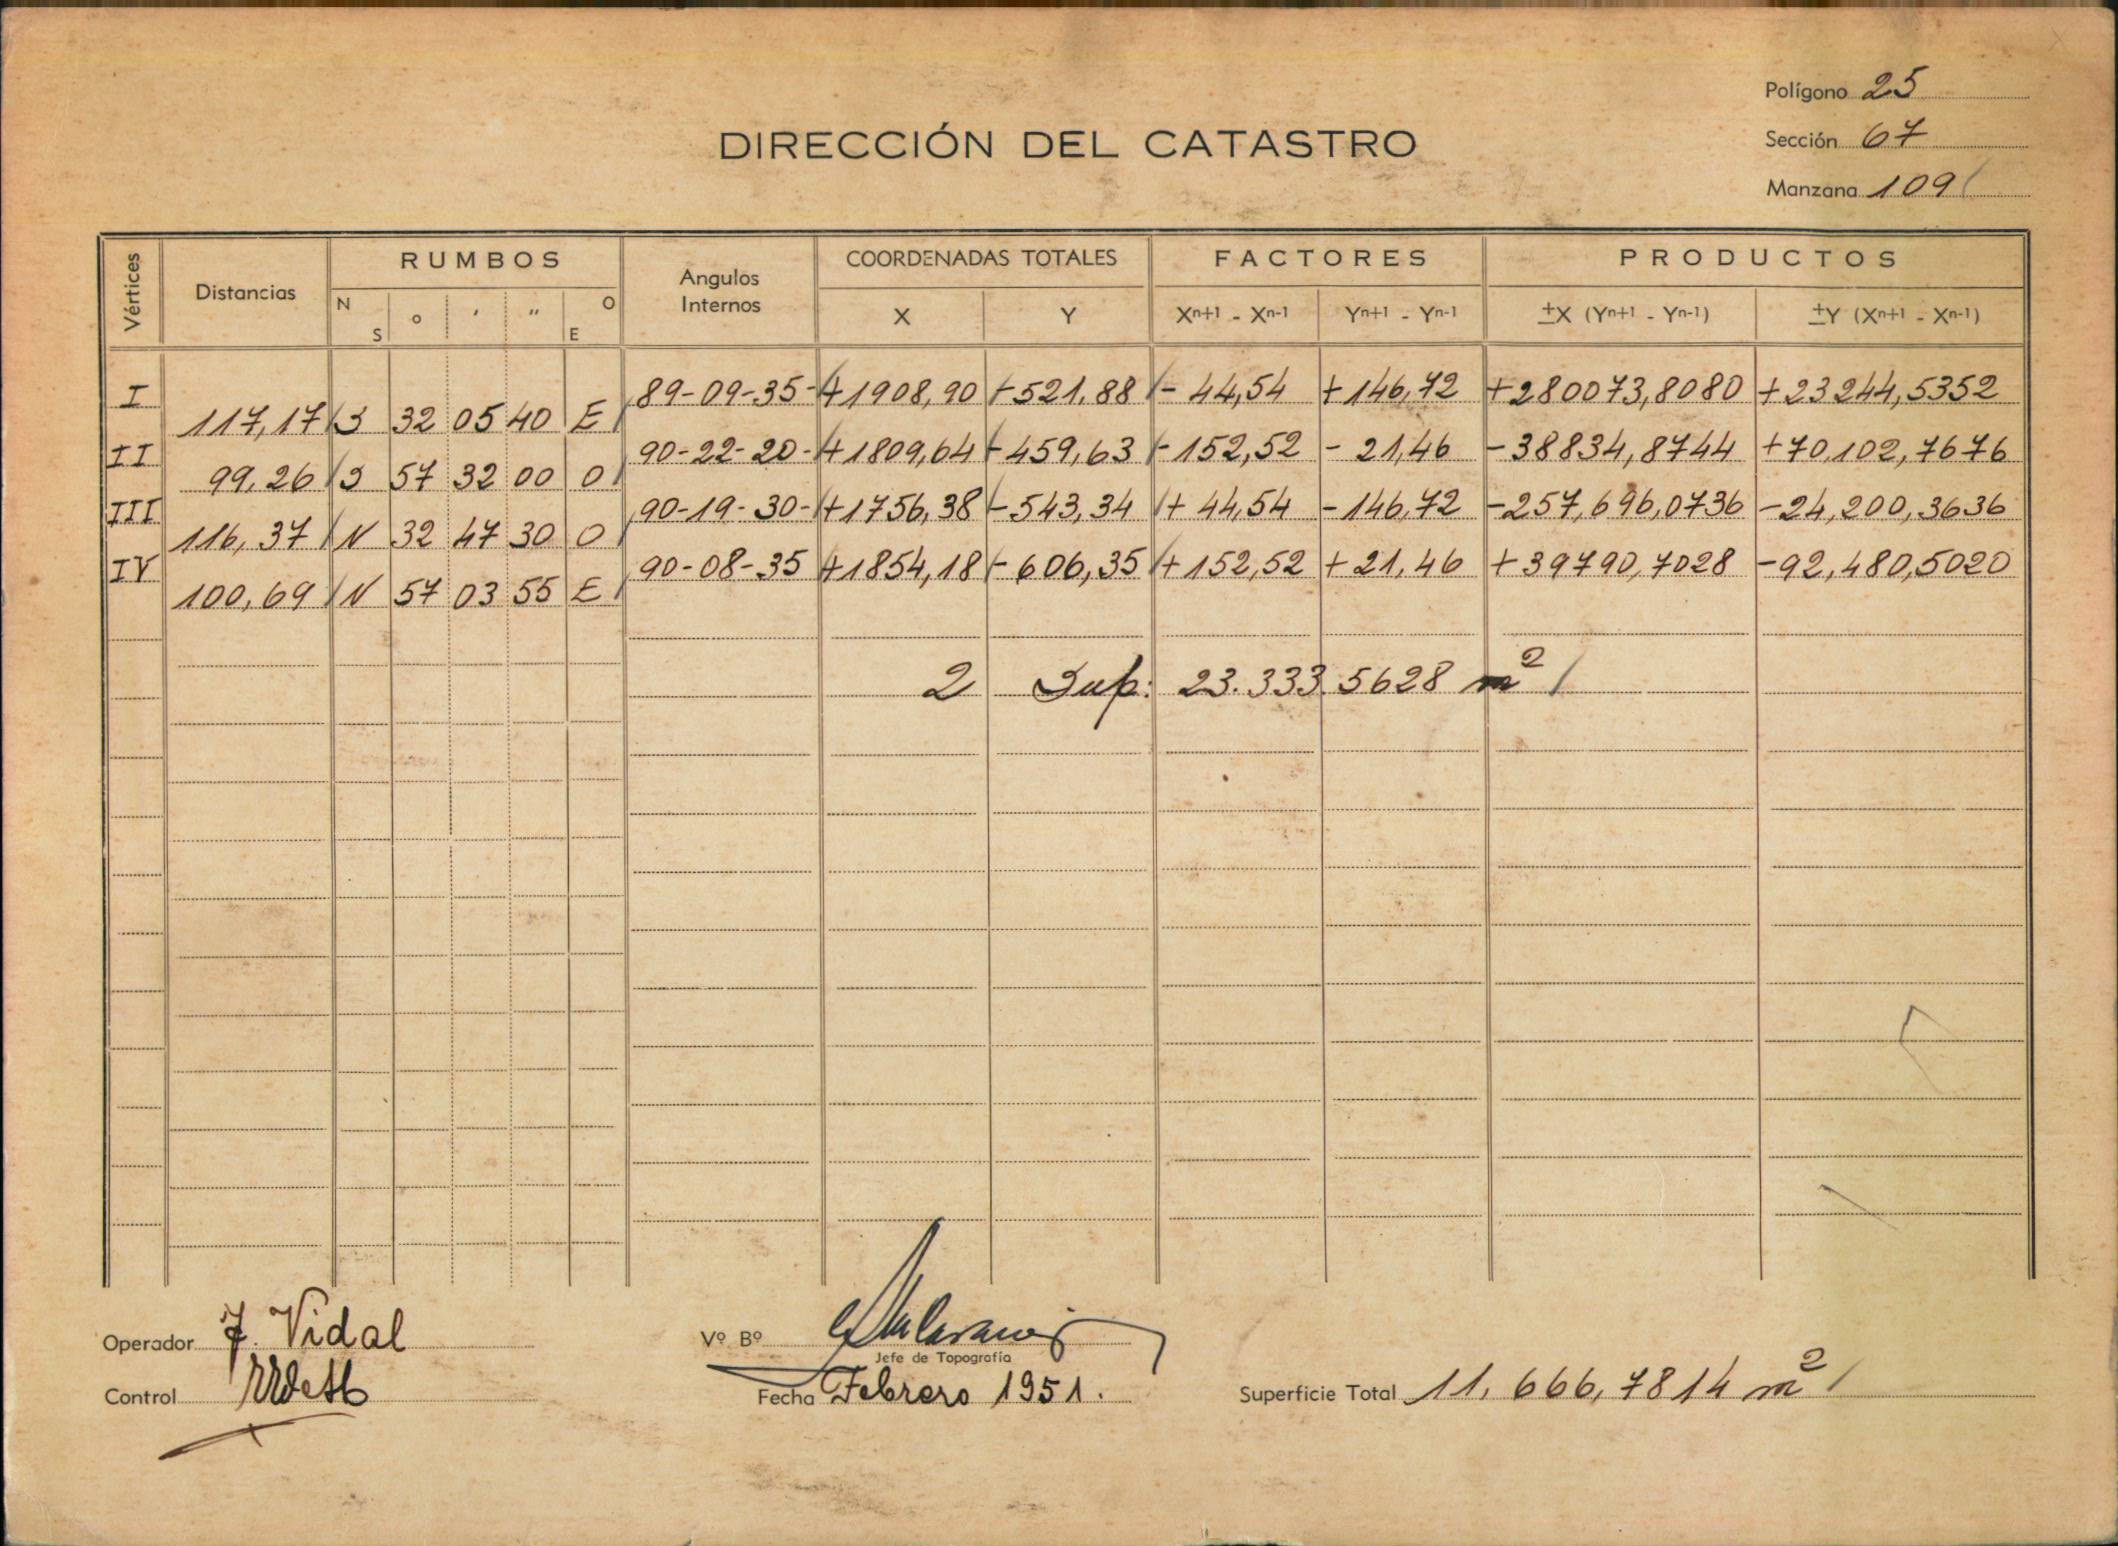 Polígono 25
DIRECCIÓN DEL CATASTRO
Sección 67
Manzana 109
Vértices Distancias RUMBOS Angulos Internos COORDENADAS TOTALES FACTORES PRODUCTOS
N S o ' '' O E X Y Xn+1 - Xn-1 Yn+1 - Yn-1 ±X (Yn+1 - Yn-1) ±Y (Xn+1 - Xn-1)
I 89-09-35- +1908,90 -521,88 - 44,54 +146,72 +280073,8080 +23244,5352
117,17 S 32 05 40 E
II 90-22-20- +1809,64 -459,63 -152,52 - 21,46 -38834,8744 +70,102,7676
99,26 S 57 32 00 O
III 90-19-30- +1756,38 -543,34 + 44,54 -146,72 -257,696,0736 -24,200,3636
116,37 N 32 47 30 O
IV 90-08-35 +1854,18 - 606,35 +152,52 +21,46 +39790,7028 -92,480,5020
100,69 N 57 03 55 E
2 Sup: 23.333.5628 m²
Operador J. Vidal Vº Bº
Jefe de Topografía
Control Fecha Febrero 1951. Superficie Total 11,666,7814 m²